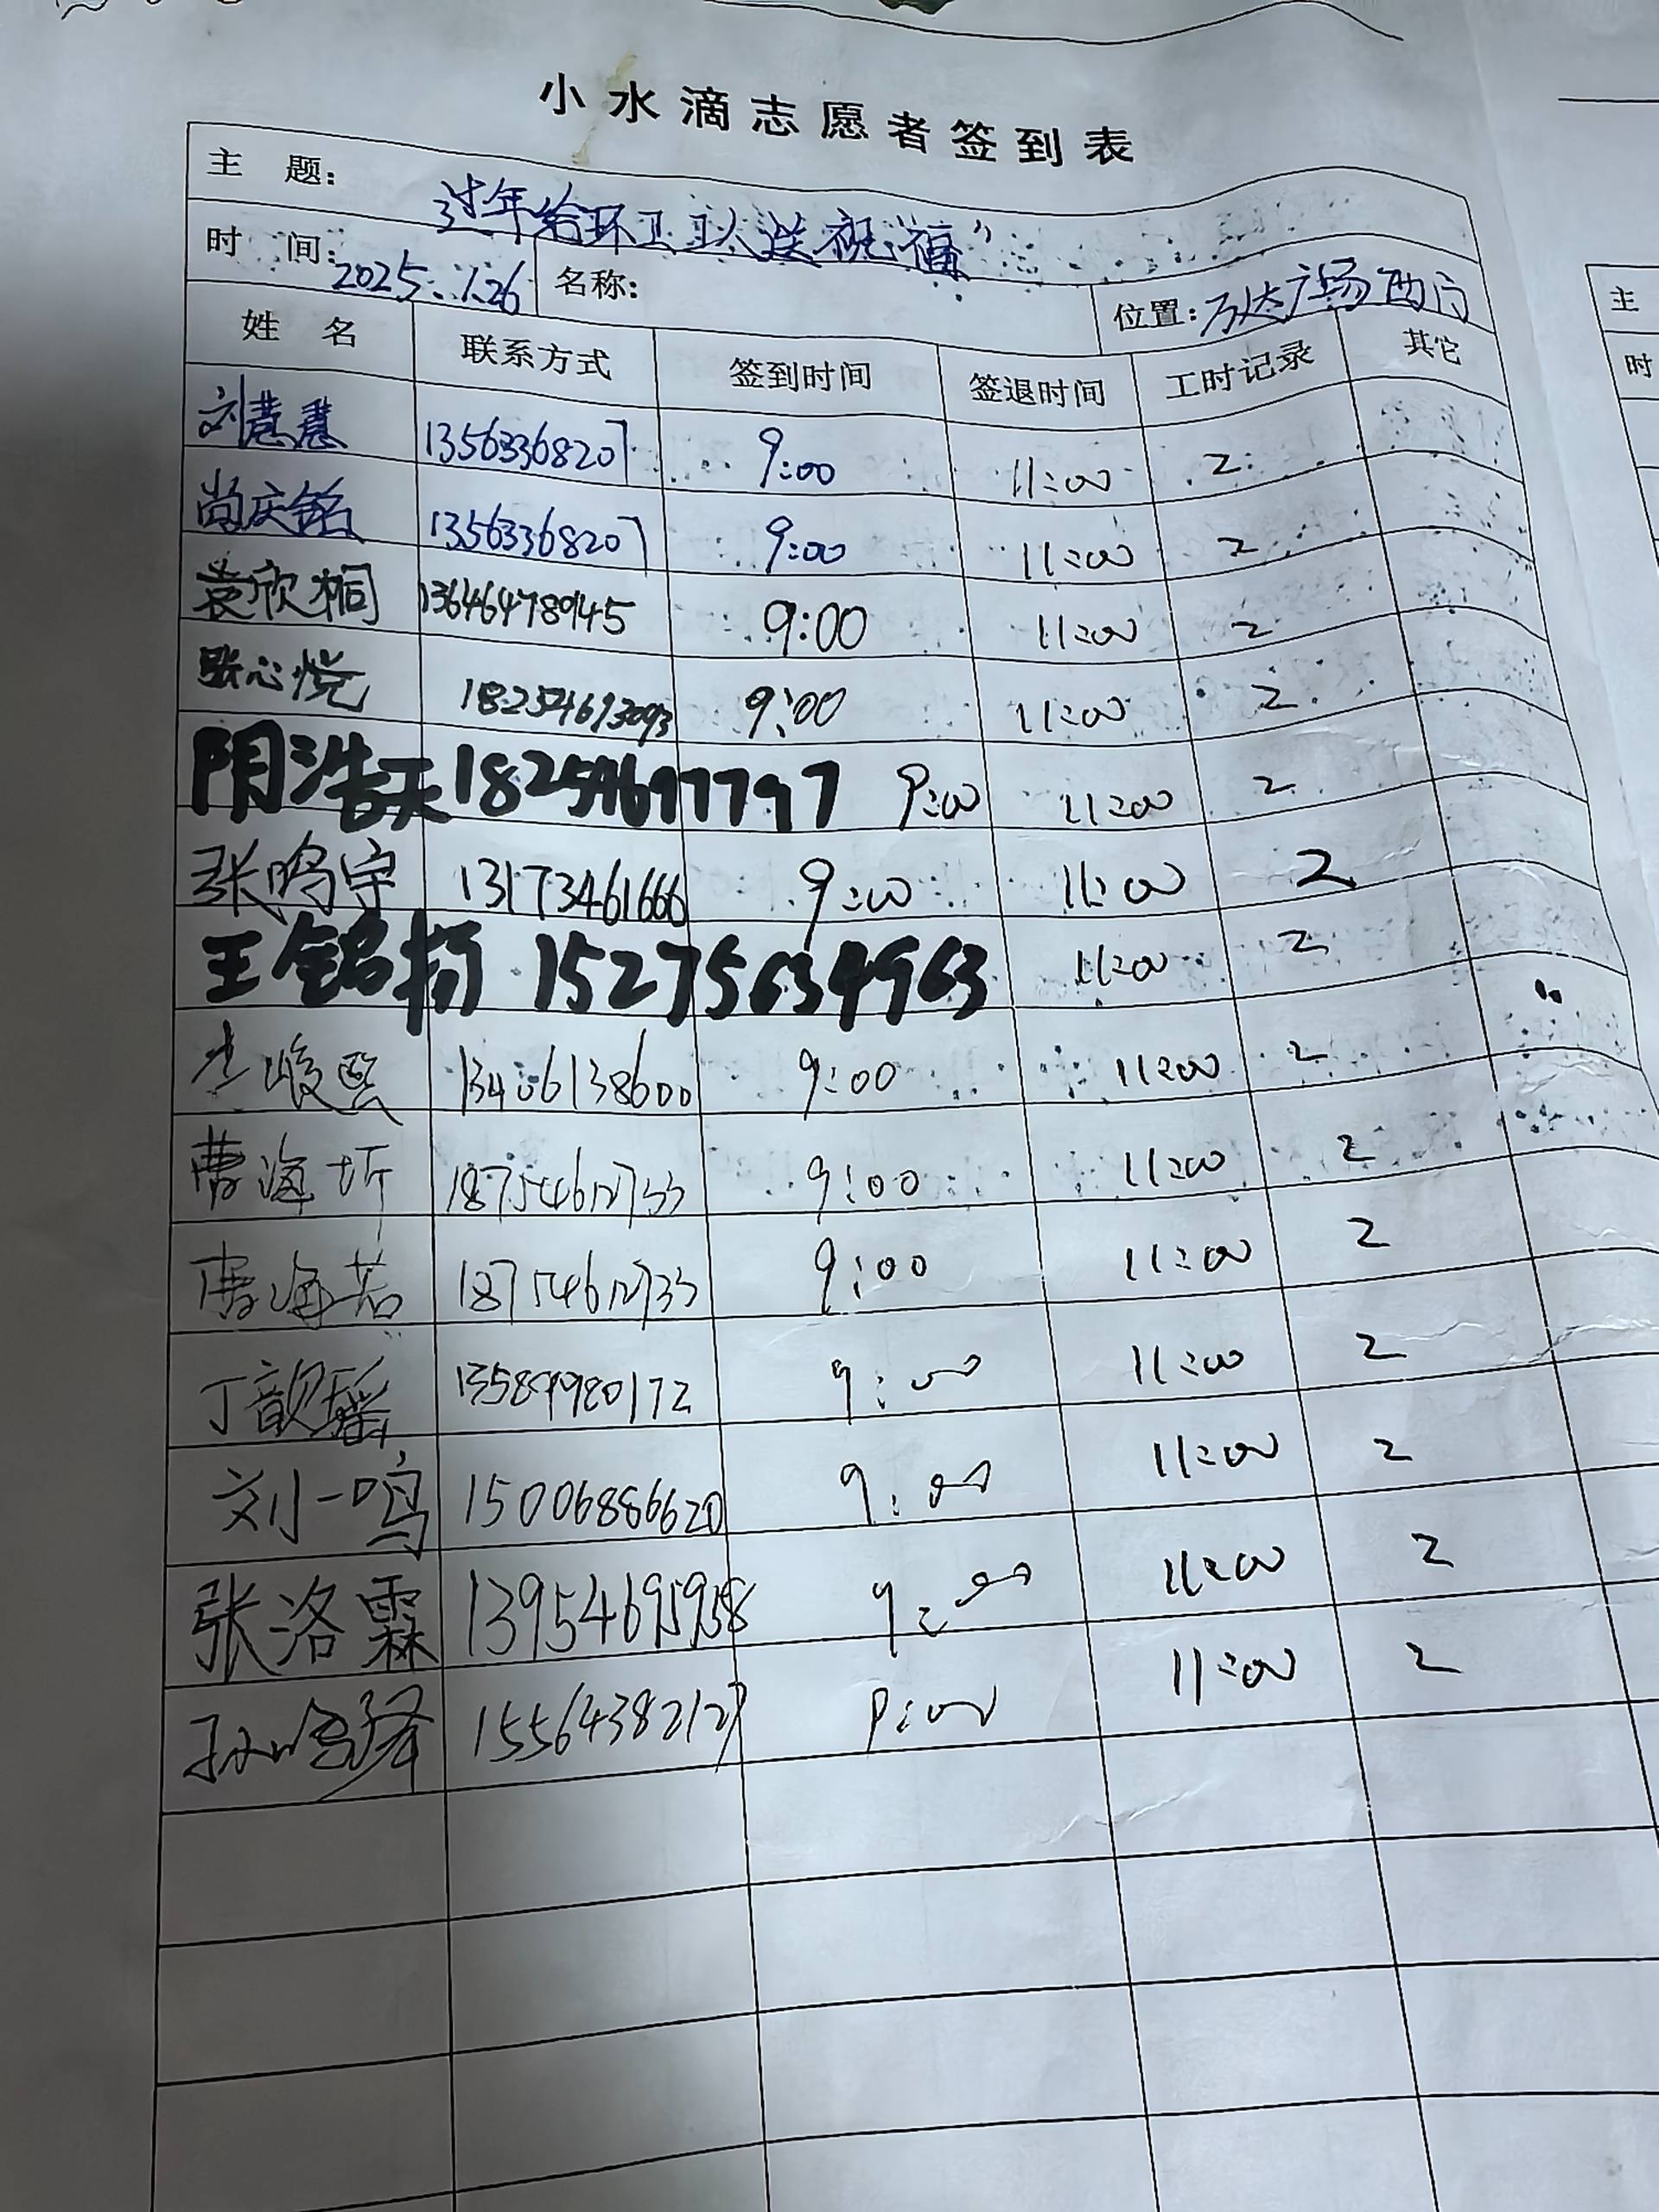 小水滴志愿者签到表
主 题: 过年给环卫工人送祝福”
时 间: 2025.1.26 名称: 位置: 万达广场西门
姓 名 联系方式 签到时间 签退时间 工时记录 其它
刘慧慧 13563368207 9:00 11:00 2
尚庆铭 13563368207 9:00 11:00 2
袁欣桐 13646478945 9:00 11:00 2
张心悦 18254693093 9:00 11:00 2
阴浩天 18254697797 9:00 11:00 2
张鸣宇 13173461666 9:00 11:00 2
王铭扬 15275634963 11:00 2
李峻熙 13406138600 9:00 11:00 2
曹海圻 18754612733 9:00 11:00 2
曹海若 18754612733 9:00 11:00 2
丁歆瑶 13589980172 9:00 11:00 2
刘一鸣 15006886620 9:00 11:00 2
张洛霖 13954695958 9:00 11:00 2
孙晗泽 15564382127 9:00 11:00 2
主
时